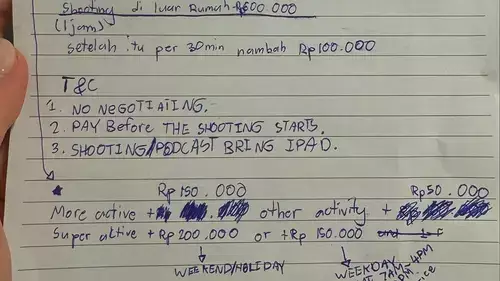 Shooting di luar Rumah Rp600.000
(1jam)
setelah itu per 30min nambah Rp100.000
T&C
1. NO NEGOTIATING.
2. PAY BeFore THE SHOOTING STARTS.
3. SHOOTING/PODCAST BRING IPAD.
Rp 150.000 Rp50.000
More active + other activity +
Super aktive + Rp 200.000 or + Rp 150.000
WEEKEND/HOLIDAY WEEKDAY
7AM-4PM